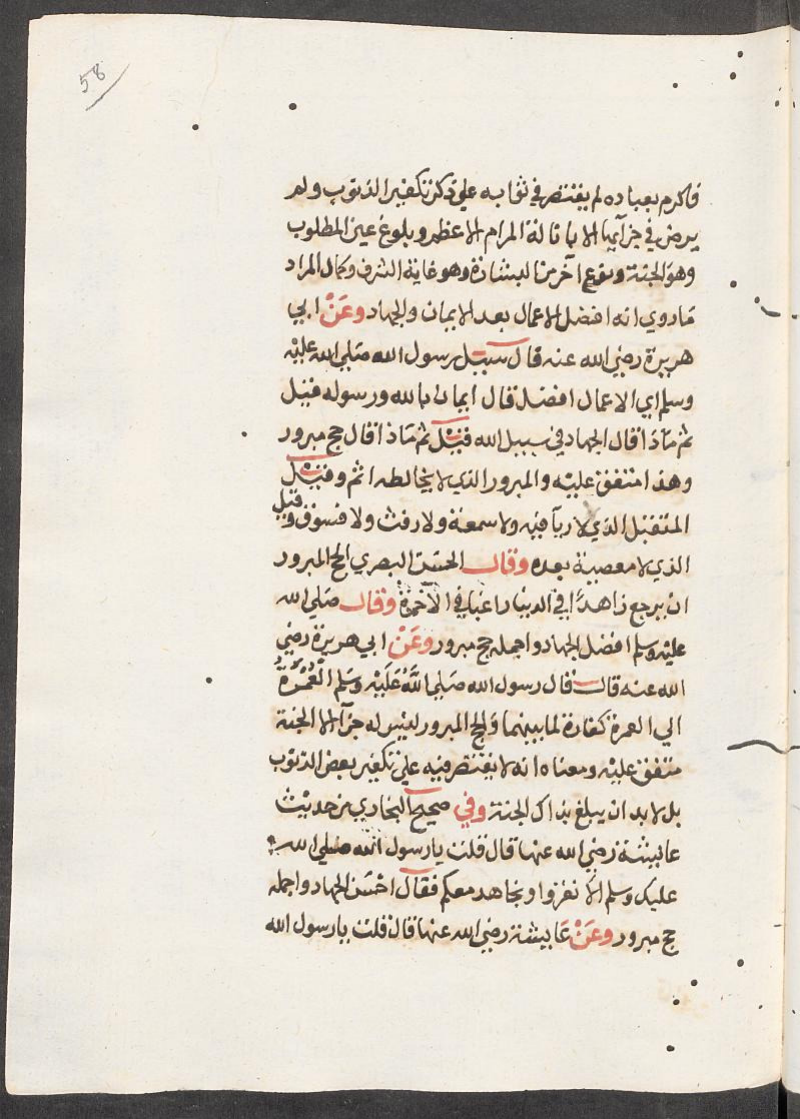 58
فاكرم بعباده لم يقتصر في ثوابه علي ذكر تكفير الذنوب ولم
يرض في جزآيها الا بانالة المرام الاعظم وبلوغ عين المطلوب
وهو الجنة ونوع آخر من البشارة وهو غاية الشرف وكمال المراد
ماروي انه افضل الاعمال بعد الايمان والجهاد وعن ابي
هريرة رضي الله عنه قال سيل رسول الله صلي الله عليه
وسلم اي الاعمال افضل قال ايمان بالله ورسوله فيل
ثم ماذا قال الجهاد في سبيل الله قيل ثم ماذا قال حج مبرور
وهذا متفق عليه والمبرور الذي لا يخالطه اثم وقيل
المتقبل الذي لا ريآ فيه ولا سمعة ولا رفث ولا فسوق وقيل
الذي لا معصية بعده وقال الحسن البصري الحج المبرور
ان يرجع زاهدًا في الدنيا راغبا في الآخرة وقال صلي الله
عليه وسلم افضل الجهاد واجمله حج مبرور وعن ابي هريرة رضي
الله عنه قال قال رسول الله صلي الله عليه وسلم العُمْرَةُ
الي العمرة كفارة لما بينهما والحج المبرور ليس له جزآ الا الجنة
متفق عليه ومعناه انه لا يقتصر فيه علي تكفير بعض الذنوب
بل لا بد ان يبلغ بذاك الجنة وفي صحيح البخاري من حديث
عايشة رضي الله عنها قال قلت يارسول الله صلي الله
عليك وسلم الا نغزوا ونجاهد معكم فقال احسن الجهاد واجمله
حج مبرور وعن عايشة رضي الله عنها قال قلت يارسول الله